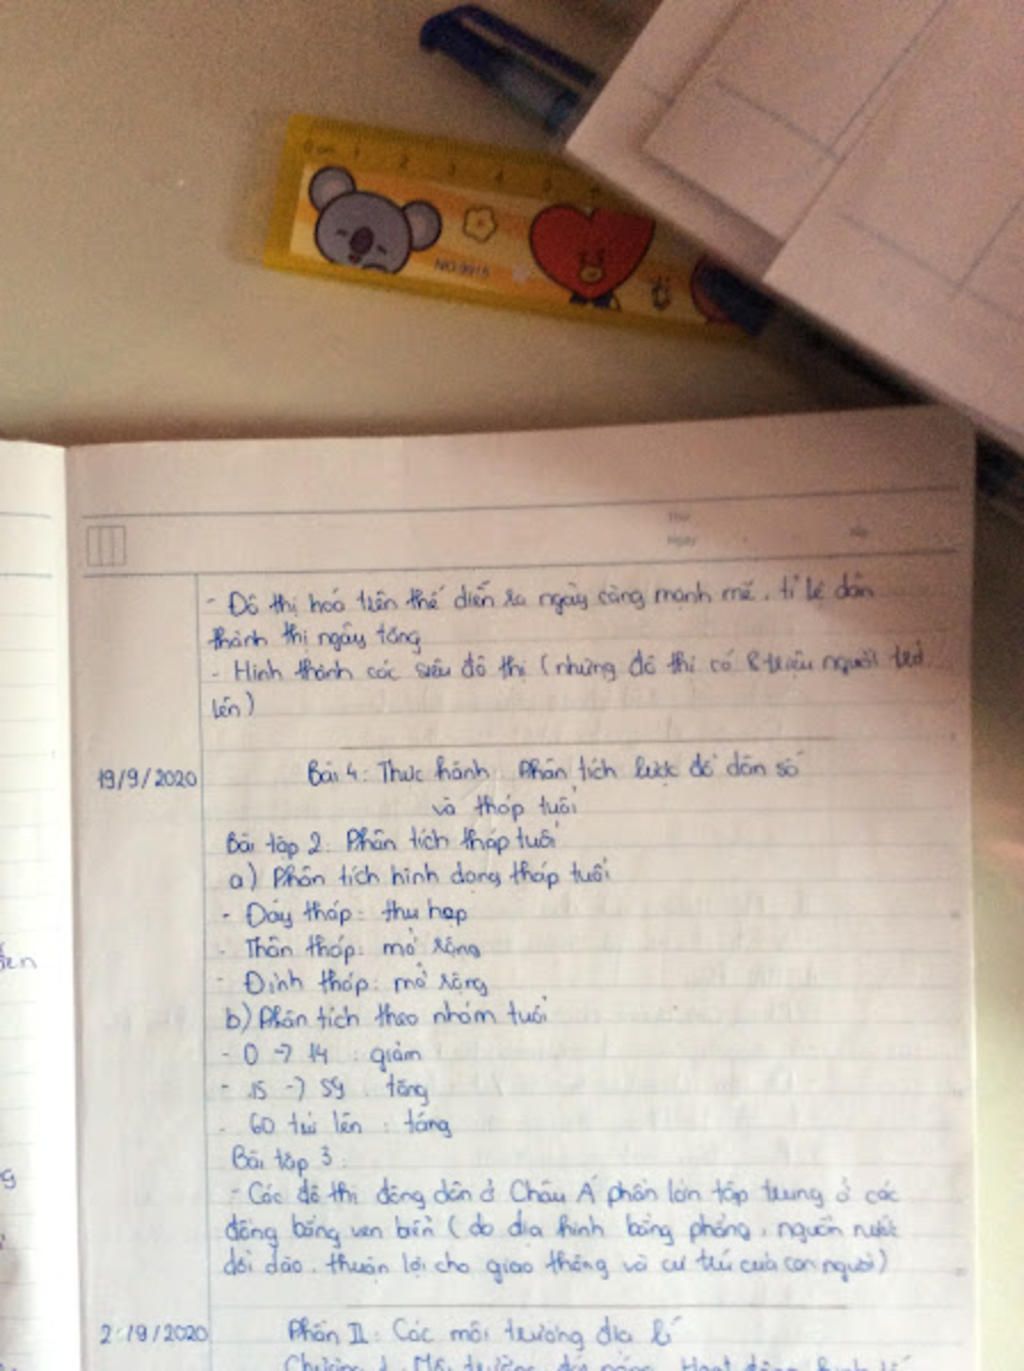 0 cm 1 2 3 4 5
NO.9915
Thứ
Ngày
- Đô thị hoá trên thế diễn ra ngày càng mạnh mẽ, tỉ lệ dân
thành thị ngày tăng
- Hình thành các siêu đô thị (những đô thị có 8 triệu người trở
lên)
19/9/2020
Bài 4: Thực hành: Phân tích lược đồ dân số
và tháp tuổi
Bài tập 2: Phân tích tháp tuổi
a) Phân tích hình dạng tháp tuổi
- Đáy tháp: thu hẹp
- Thân tháp: mở rộng
- Đỉnh tháp: mở rộng
b) Phân tích theo nhóm tuổi
- 0 → 14 : giảm
- 15 → 59 : tăng
- 60 trở lên : tăng
Bài tập 3:
- Các đô thị đông dân ở Châu Á phân lớn tập trung ở các
đồng bằng ven biển (do địa hình bằng phẳng, nguồn nước
dồi dào, thuận lợi cho giao thông và cư trú của con người)
/9/2020
Phần II: Các môi trường địa lí
Chương 1: Môi trường đới nóng. Hoạt động kinh tế